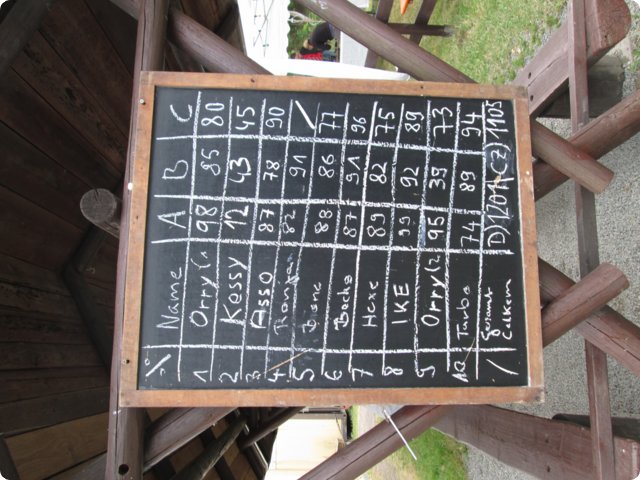 N° Name A B C
1 Orry (1 98 85 80
2 Kessy 12 43 45
3 Asso 87 78 90
4 82 91 /
5 88 86 77
6 87 91 96
7 Hexe 89 82 75
8 IKE 99 92 89
9 Orry (2 95 39 73
10 Turbo 74 89 94
/ gesamt D) 1201 (CZ) 1105
Celkem